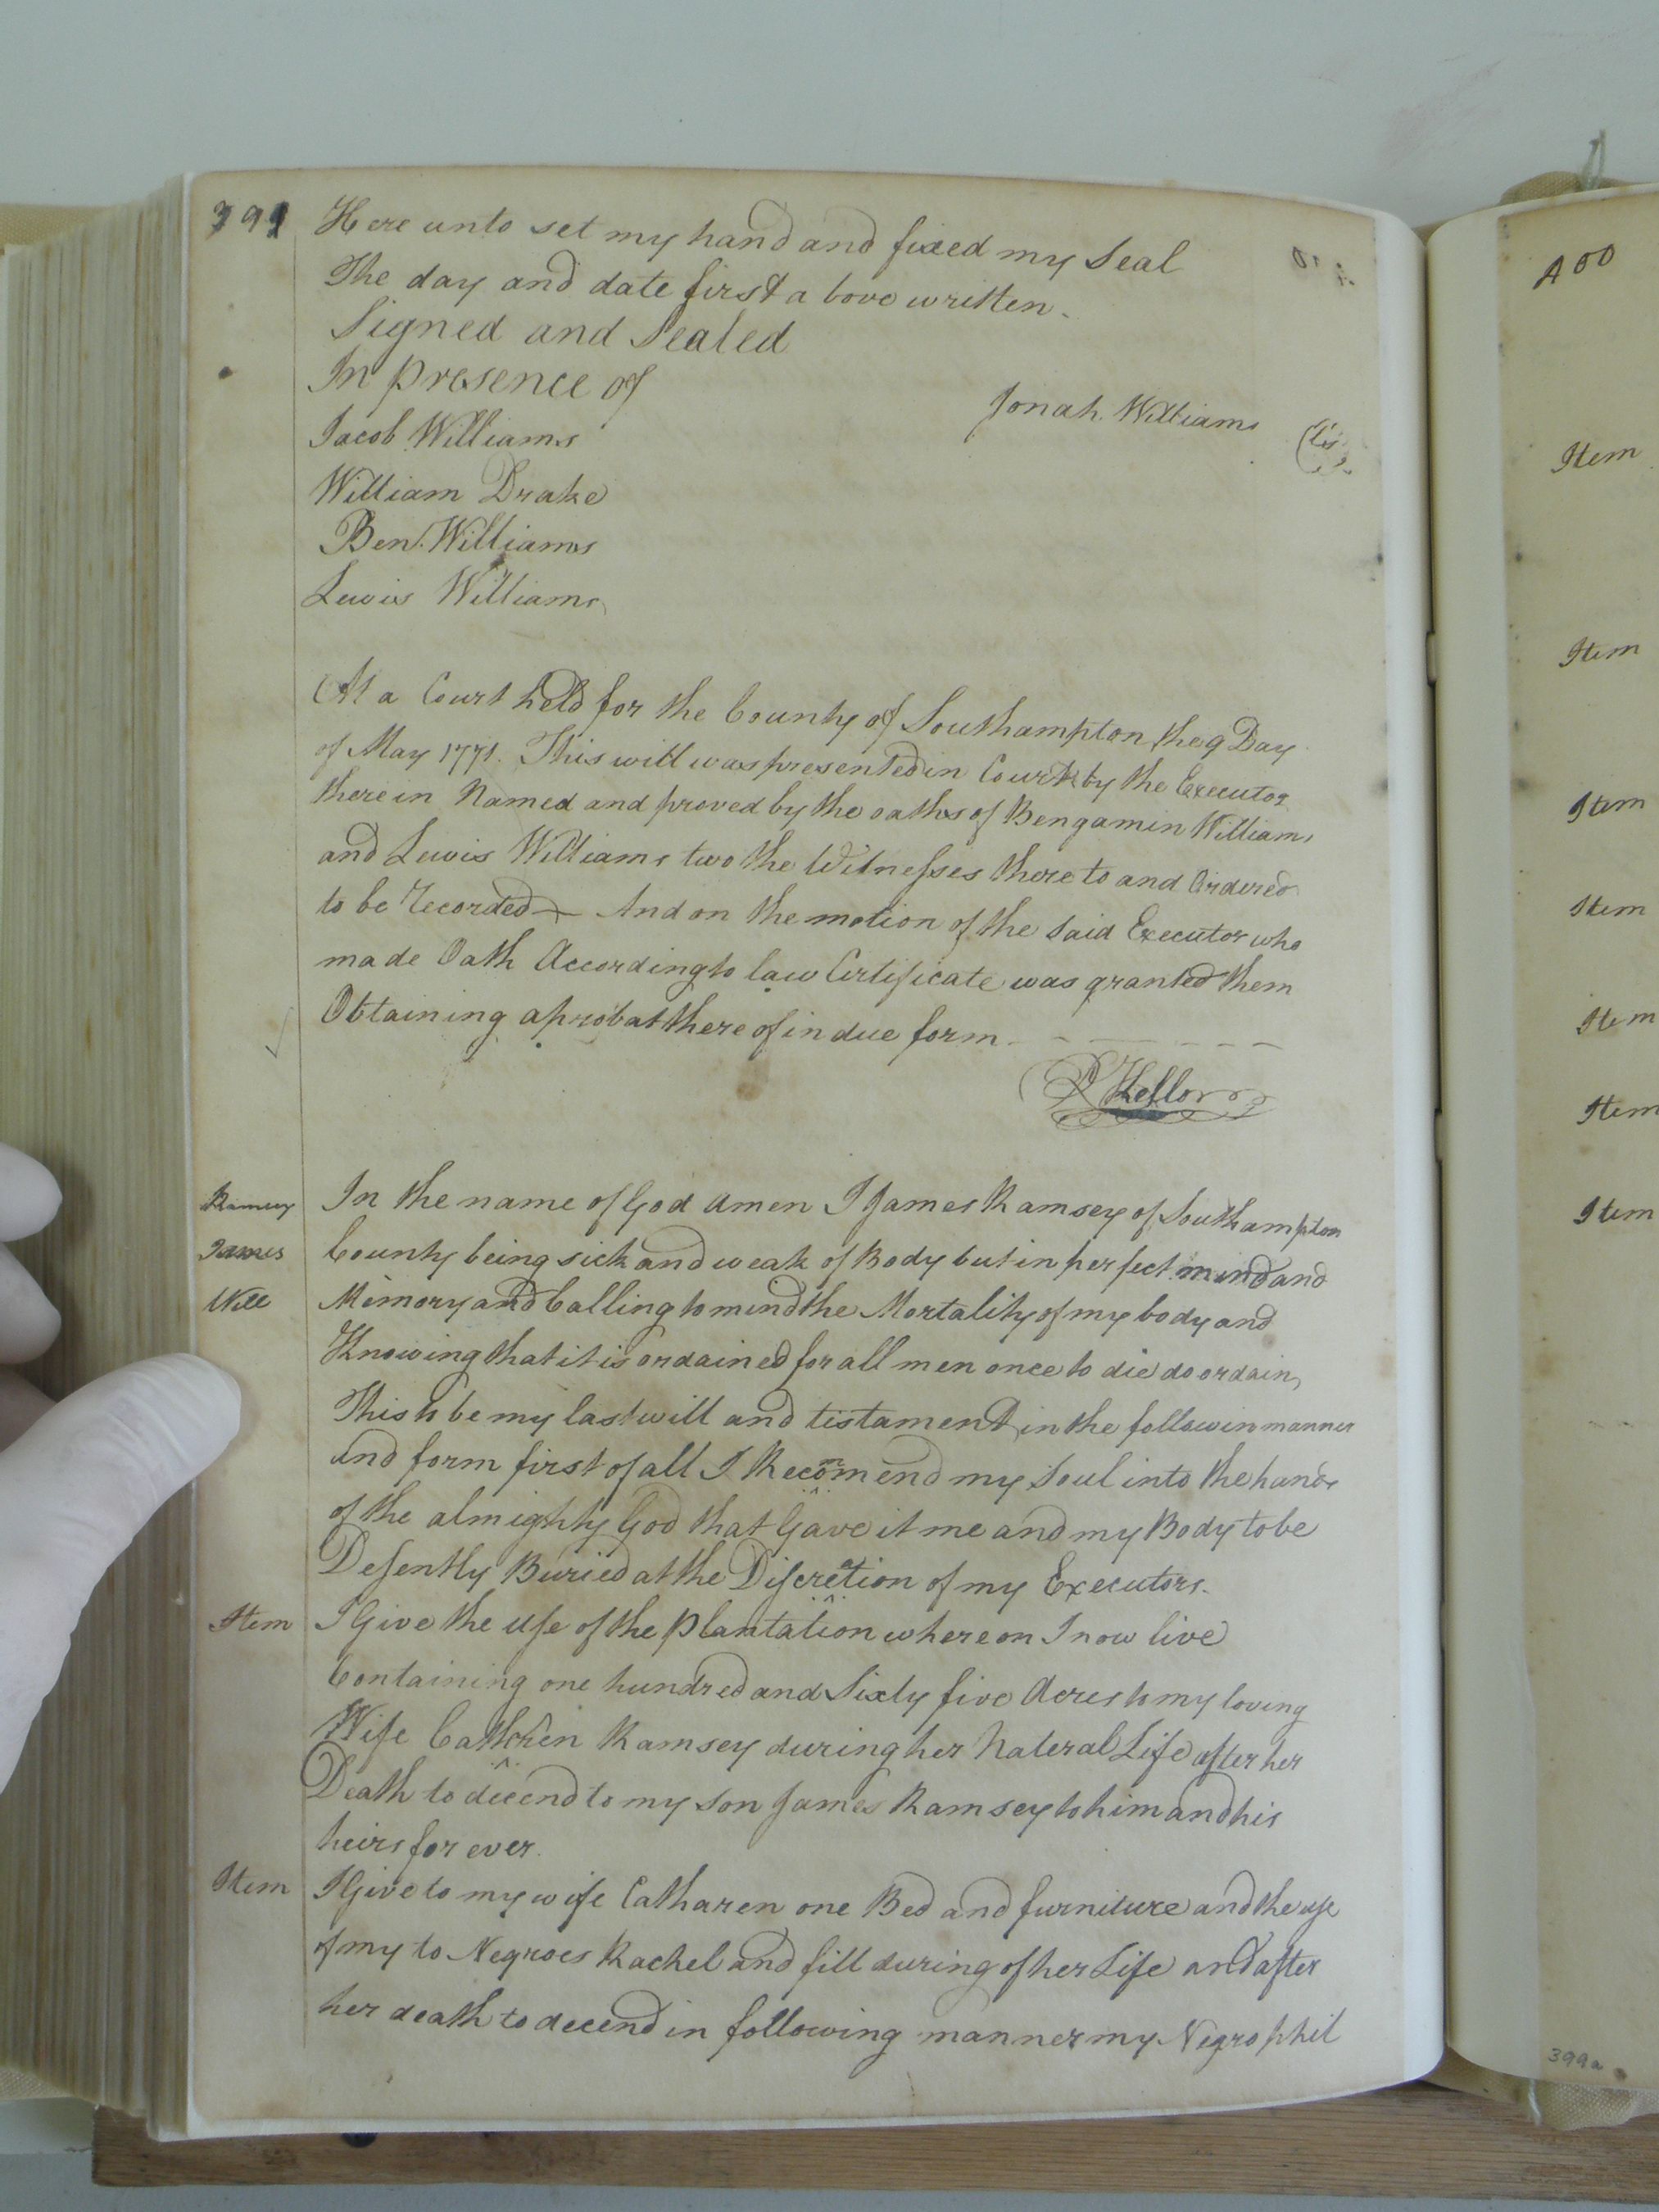 399
Here unto set my hand and fixed my Seal
The day and date first a bove written.
Signed and Sealed
In presence of
Jonah. Williams
Jacob Williams
William Drake
Ben. Williams
Lewis Williams
At a Court held for the County of Southampton the 9 Day
of May 1771. This will was presented in Court by the Executor
there in Named and proved by the oaths of Bengamin Williams
and Lewis Williams two the Witnesses there to and Ordered
to be Recorded And on the motion of the said Executor who
made Oath According to law Certificate was granted them
Obtaining a probat there of in due form
Ramsey In the name of God Amen I James Ramsey of Southampton
James County being sick and weak of Body but in perfect mind and
Will Memory and Calling to mind the Mortality of my body and
Knowing that it is ordained for all men once to die do ordain
This to be my last will and tistament in the followin manner
and form first of all I Recommend my Soul into the hands
of the almighty God that Gave it me and my Body to be
Desently Buried at the Discretion of my Executors.
Item I Give the use of the plantation where on I now live
Containing one hundred and Sixty five Acres to my loving
Wife Ramsey during her Nateral Life after her
Death to decend to my son James Ramsey to him and his
heirs for ever.
Item I Give to my wife Catharen one Bed and furniture and the use
of my to Negroes Rachel and fill during of her Life and after
her death to decend in following manner my Negro phil
A00
Item
Item
Item
Item
Item
Item
Item
399a